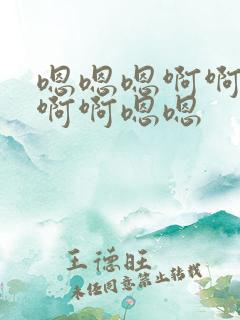 嗯嗯嗯啊啊
啊啊嗯嗯
王德旺
未经同意禁止转载